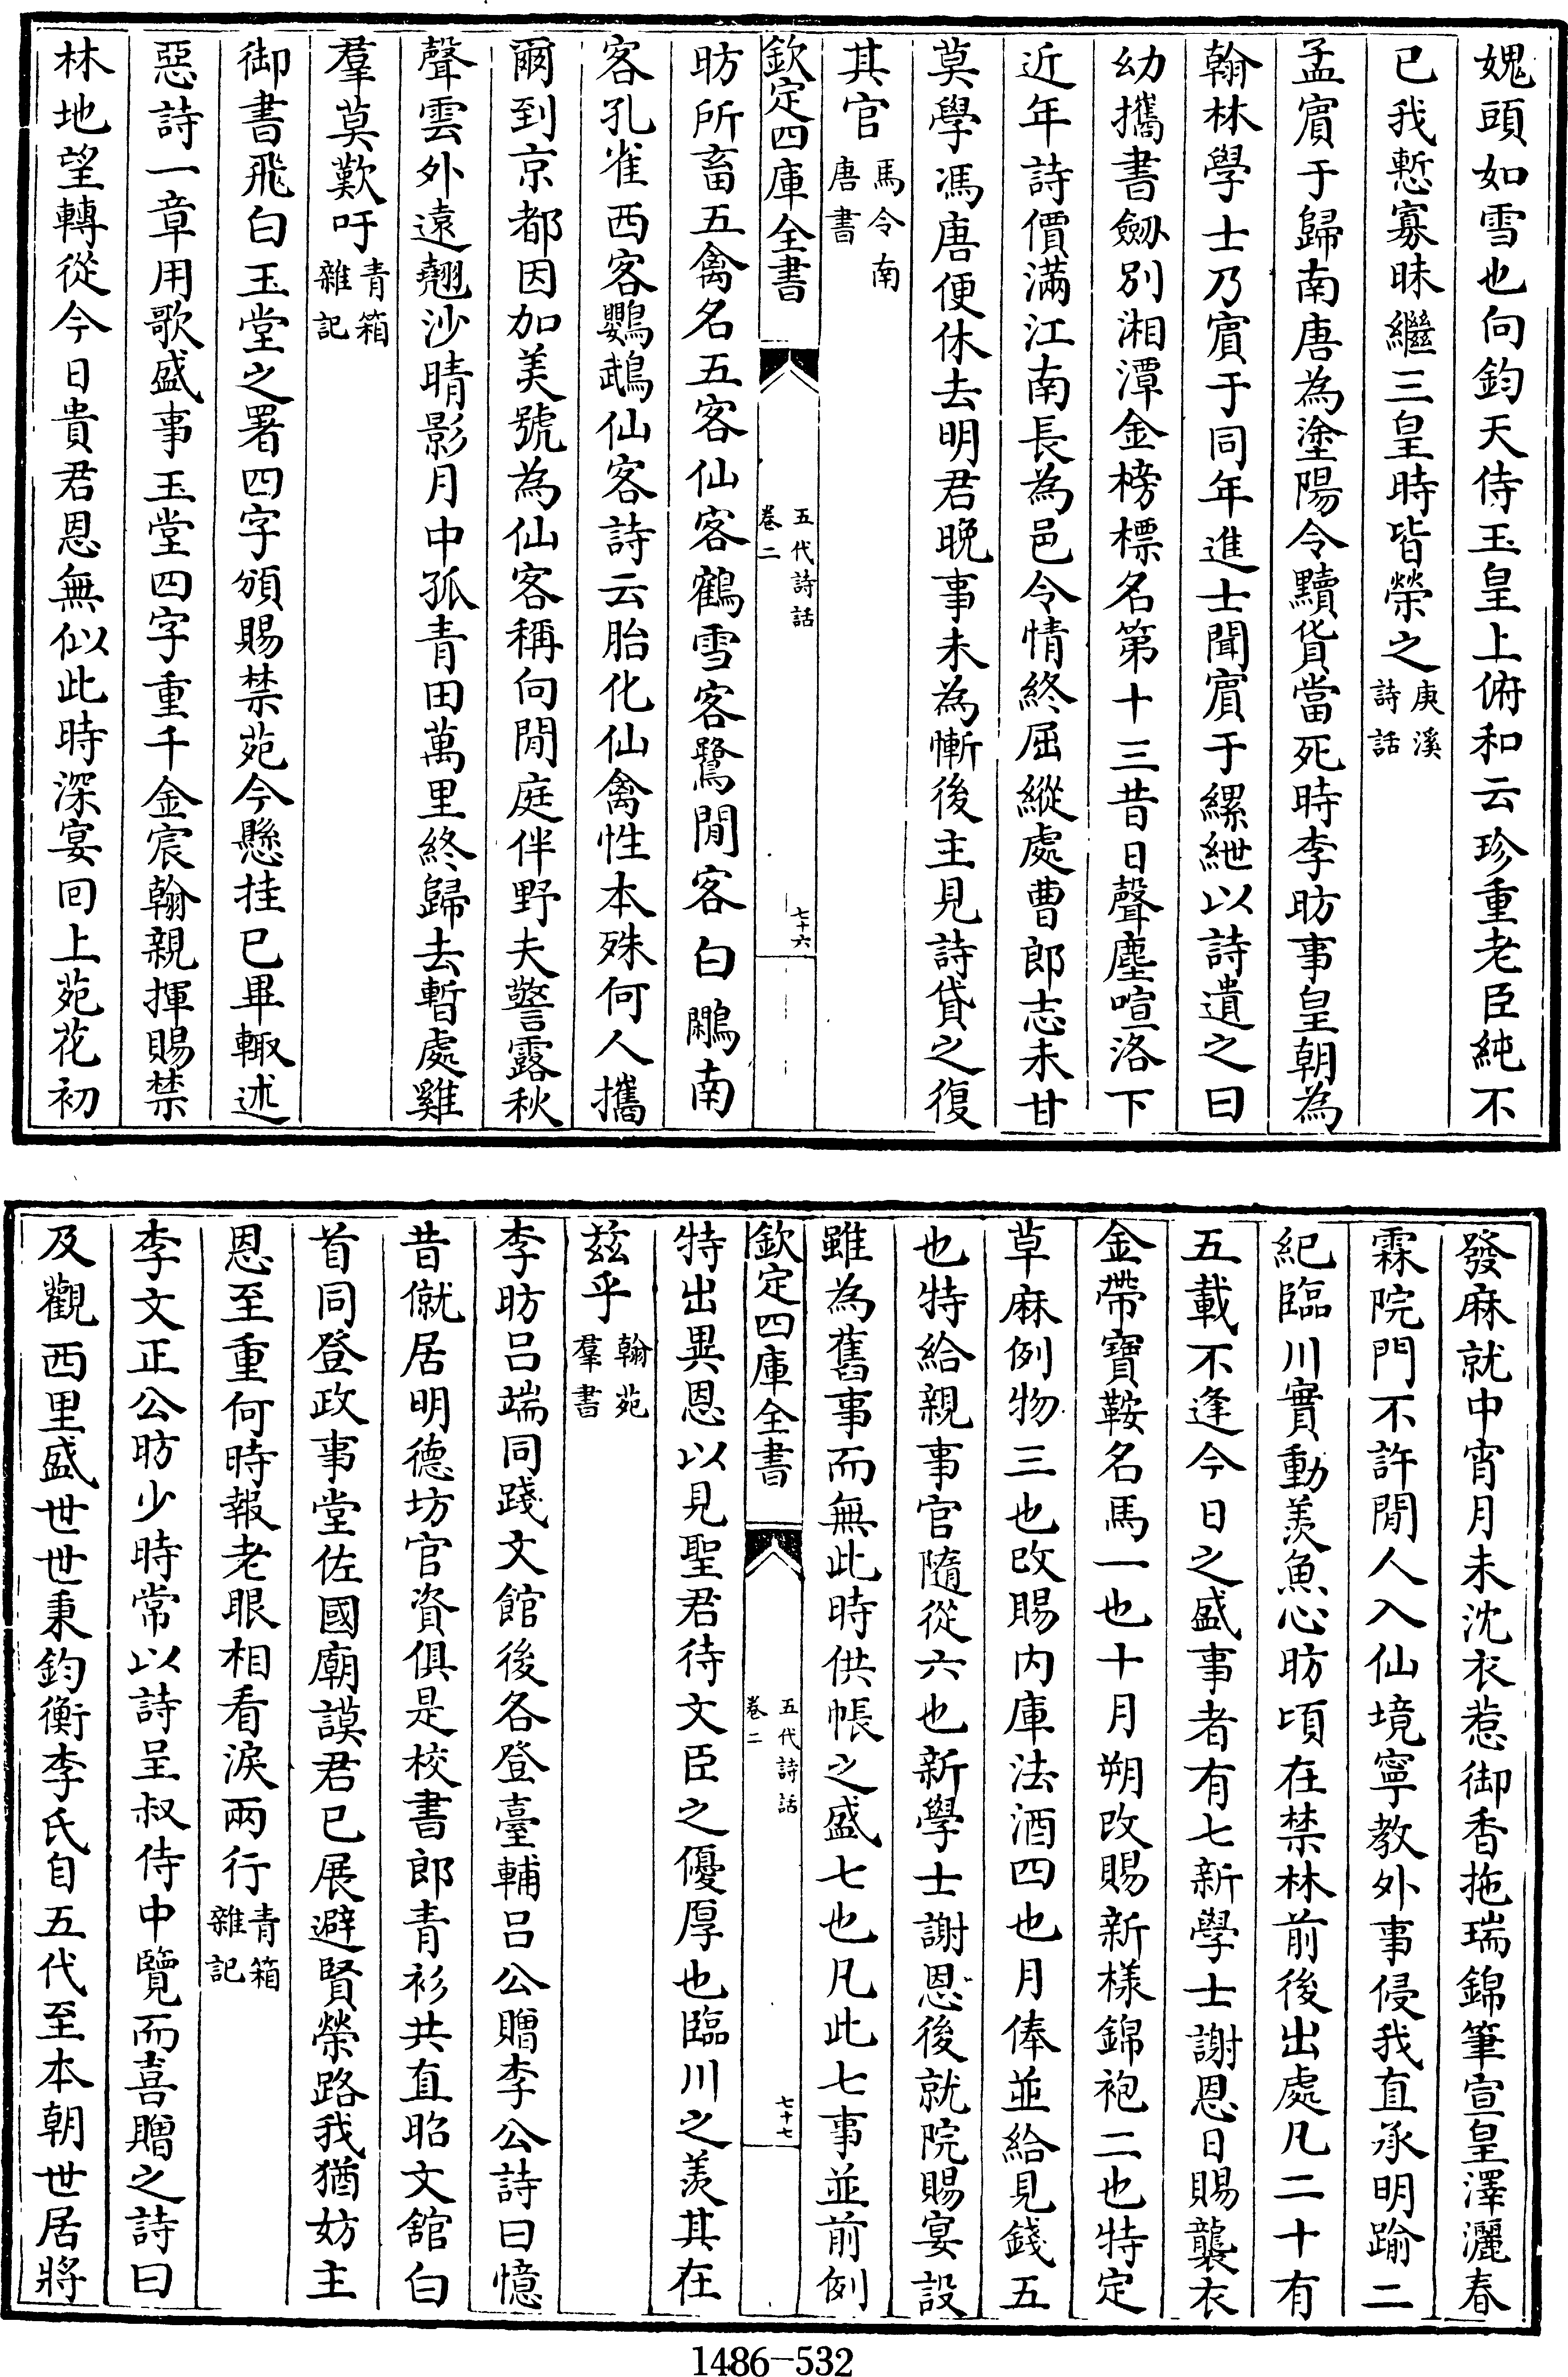 媿頭如雪也向鈞天侍玉皇上俯和云珍重老臣純不
已我慙寡昧繼三皇時皆榮之庚溪詩話
孟賔于歸南唐為塗陽令黷貨當死時李昉事皇朝為
翰林學士乃賔于同年進士聞賔于縲紲以詩遺之曰
幼攜書劒別湘潭金榜標名第十三昔日聲塵喧洛下
近年詩價滿江南長為邑令情終屈縱處曹郎志未甘
莫學馮唐便休去明君晚事未為慚後主見詩貸之復
其官馬令南唐書
欽定四庫全書 五代詩話卷二 七十六
昉所畜五禽名五客仙客鶴雪客鷺閒客白鷴南
客孔雀西客鸚鵡仙客詩云胎化仙禽性本殊何人攜
爾到京都因加美號為仙客稱向閒庭伴野夫警露秋
聲雲外遠翹沙晴影月中孤青田萬里終歸去暫處雞
羣莫歎吁青箱雜記
御書飛白玉堂之署四字頒賜禁苑今懸挂已畢輙述
惡詩一章用歌盛事玉堂四字重千金宸翰親揮賜禁
林地望轉從今日貴君恩無似此時深宴回上苑花初
發麻就中宵月未沈衣惹御香拖瑞錦筆宣皇澤灑春
霖院門不許閒人入仙境寧教外事侵我直承明踰二
紀臨川實動羨魚心昉頃在禁林前後出處凡二十有
五載不逢今日之盛事者有七新學士謝恩日賜襲衣
金帶寶鞍名馬一也十月朔改賜新樣錦袍二也特定
草麻例物三也改賜内庫法酒四也月俸並給見錢五
也特給親事官隨從六也新學士謝恩後就院賜宴設
雖為舊事而無此時供帳之盛七也凡此七事並前例
欽定四庫全書 五代詩話卷二 七十七
特出異恩以見聖君待文臣之優厚也臨川之羨其在
茲乎翰苑羣書
李昉呂端同踐文館後各登臺輔呂公贈李公詩曰憶
昔僦居明德坊官資俱是校書郎青衫共直昭文舘白
首同登政事堂佐國廟謨君已展避賢榮路我猶妨主
恩至重何時報老眼相看淚兩行青箱雜記
李文正公昉少時常以詩呈叔侍中覽而喜贈之詩曰
及觀西里盛世世秉鈞衡李氏自五代至本朝世居將
1486-532